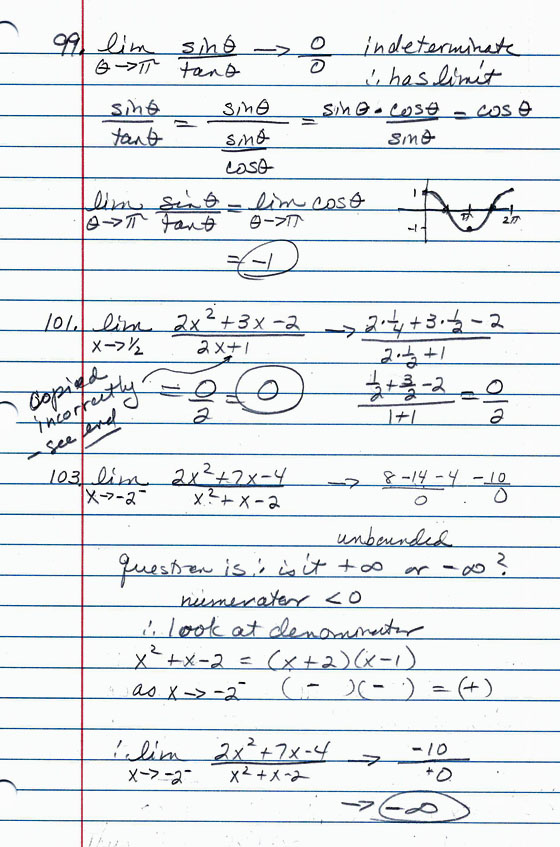 99. lim θ→π sinθ/tanθ → 0/0 indeterminate
∴ has limit
sinθ/tanθ = sinθ/(sinθ/cosθ) = sinθ·cosθ/sinθ = cosθ
lim θ→π sinθ/tanθ = lim θ→π cosθ
1 -1 π 2π
= -1
101. lim x→1/2 (2x²+3x-2)/(2x+1) → (2·1/4+3·1/2-2)/(2·1/2+1)
copied incorrectly - see end
= 0/2 = 0
(1/2+3/2-2)/(1+1) = 0/2
103. lim x→-2⁻ (2x²+7x-4)/(x²+x-2) → (8-14-4)/0 -10/0
unbounded
Question is: is it +∞ or -∞?
numerator <0
∴ look at denominator
x²+x-2 = (x+2)(x-1)
as x→-2⁻ (- )(- ) = (+)
∴ lim x→-2⁻ (2x²+7x-4)/(x²+x-2) → -10/+0
→ -∞